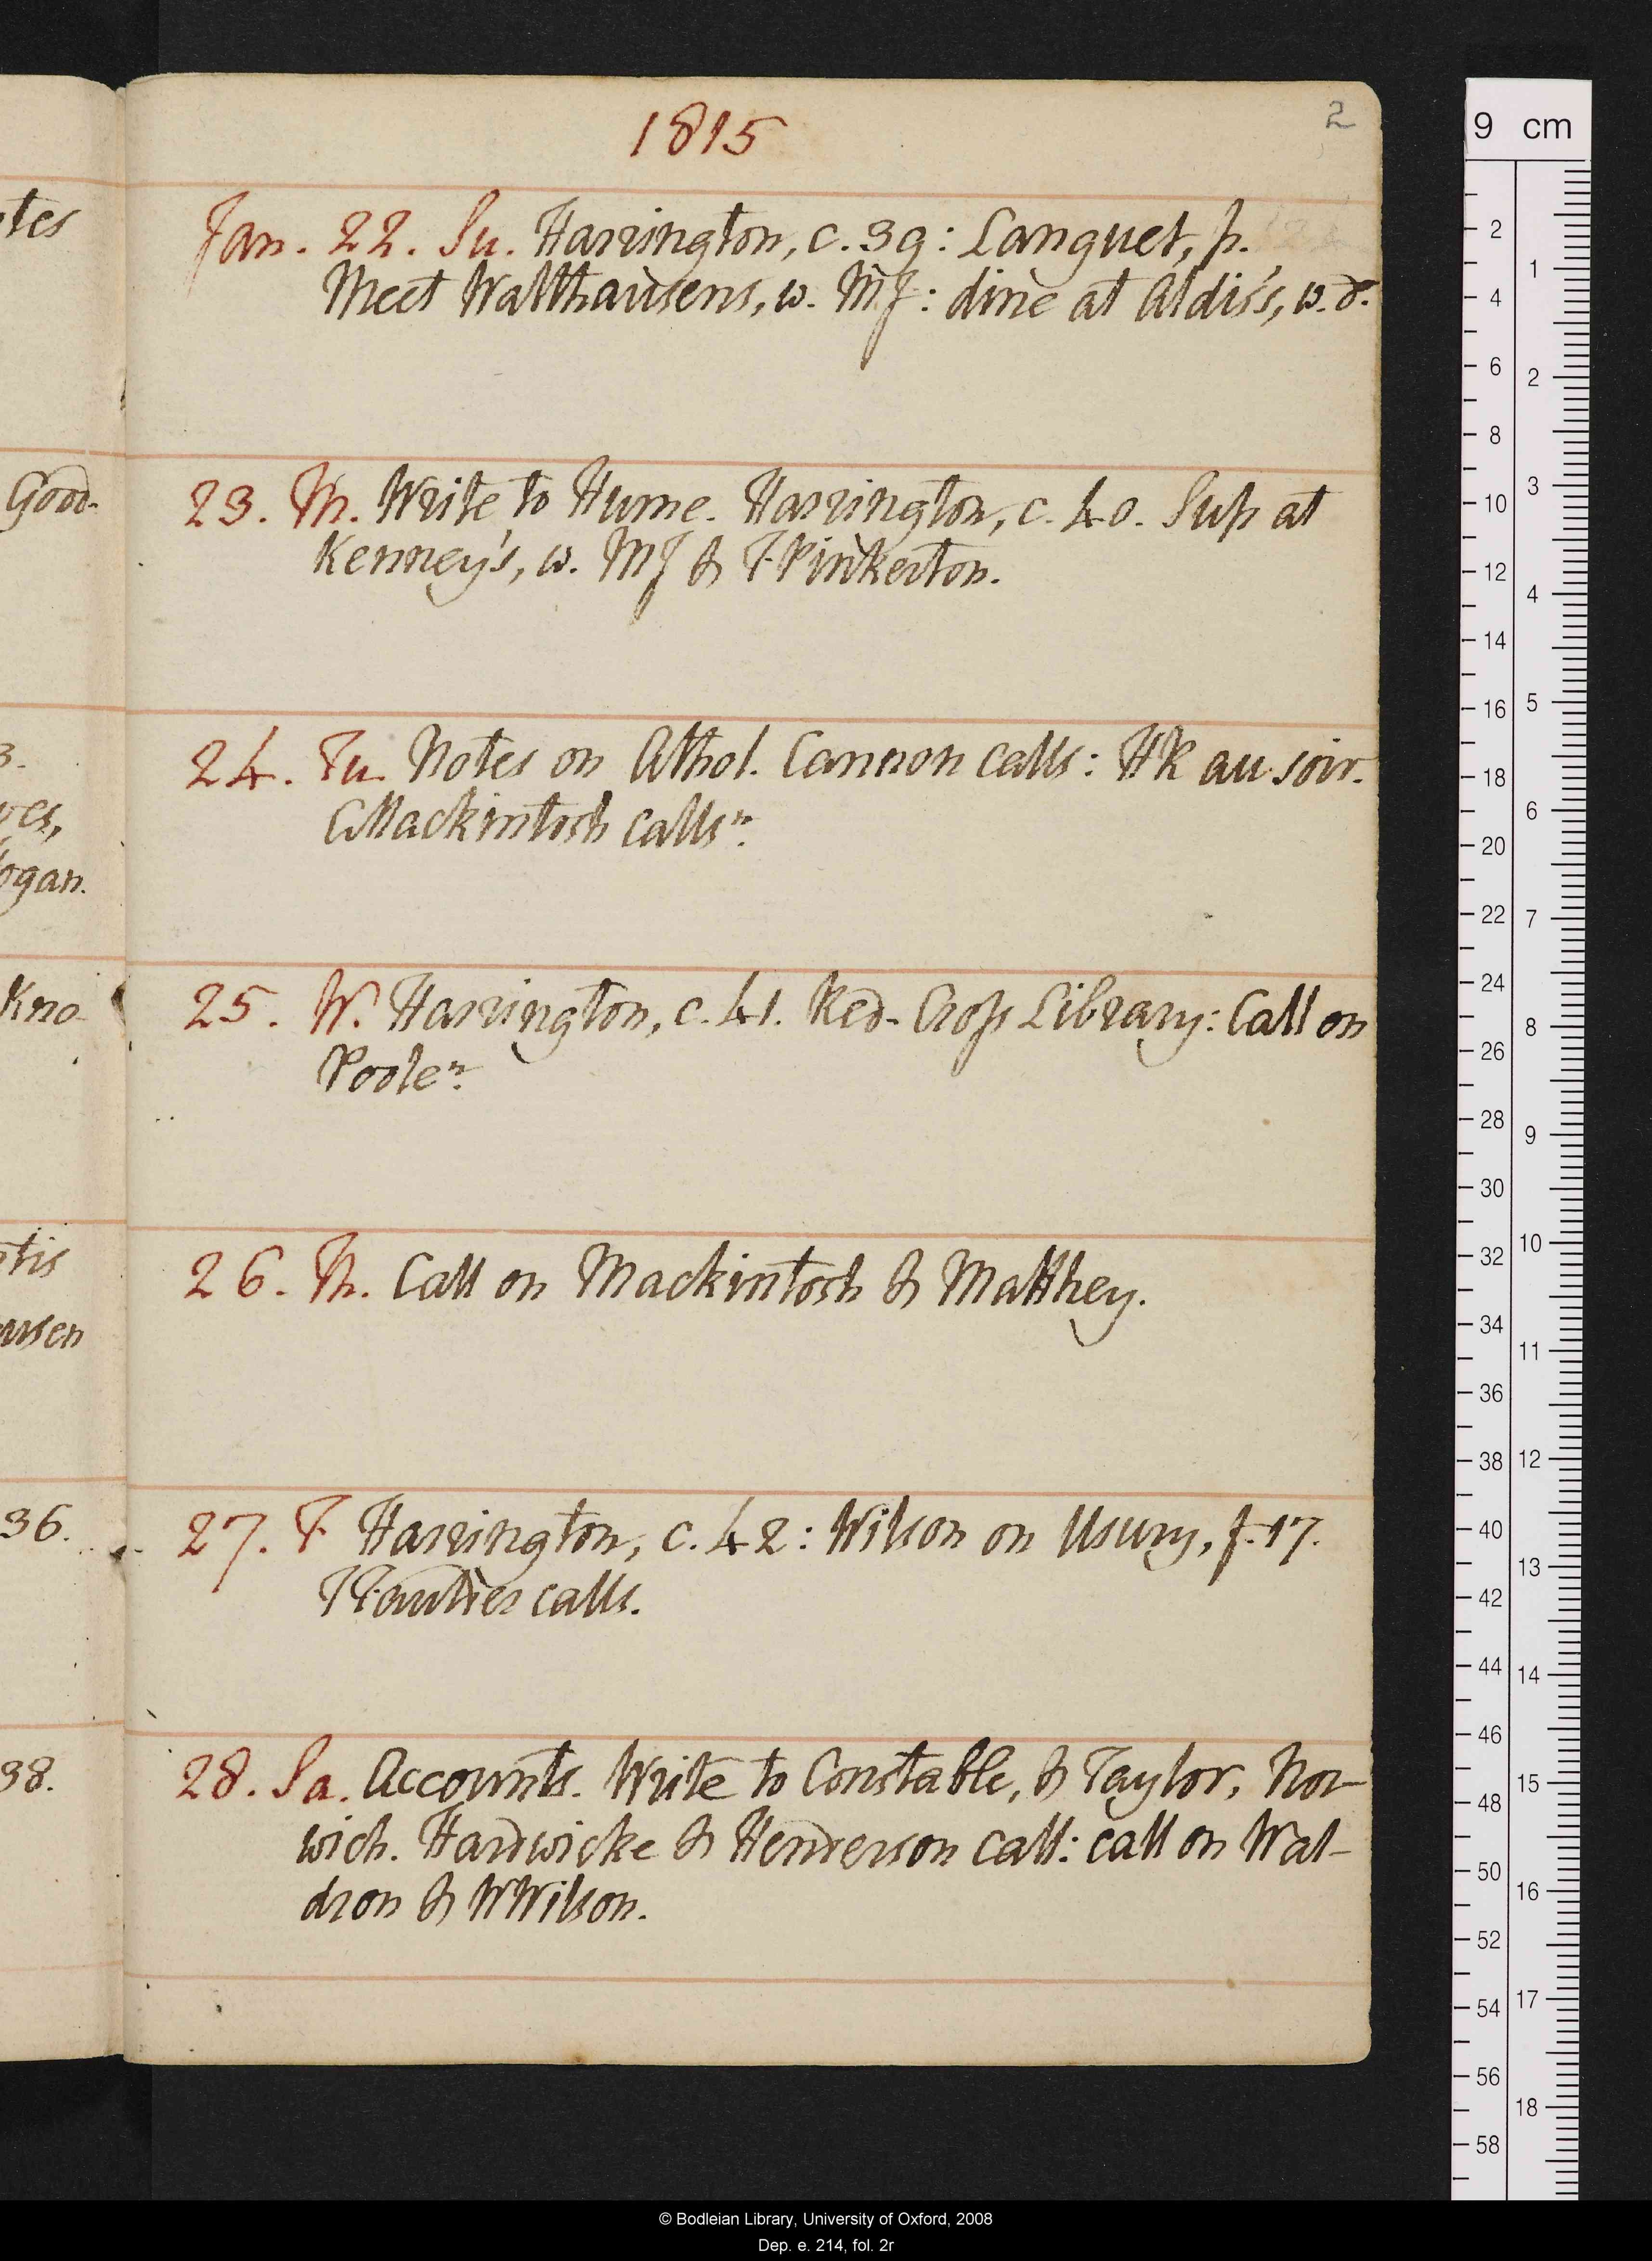 1815
2
Jan. 22. Su. Harrington, c. 39: Languet, p.
Meet Walthausens, w. MJ: dine at Aldis's, w. do.
23. M. Write to Hume. Harrington, c. 40. Sup at
Kenney's, w. MJ & F. Pinkerton.
24. Tu. Notes on Athol. Cannon calls: HR au soir.
Mackintosh calls n.
25. W. Harrington, c. 41. Red-Cross Library: Call on
Poole n.
26. Th. Call on Mackintosh & Matthey.
27. F. Harrington, c. 42: Wilson on Usury, f. 17.
calls.
28. Sa. Accounts. Write to Constable, & Taylor, Nor-
wich. Hardwicke & Henderson call: call on Wal-
dron & WWilson.
tes
Good-
3.
ogan.
Kno-
tis
ausen
36.
38.
9 cm
2 4 6 8 10 12 14 16 18 20 22 24 26 28 30 32 34 36 38 40 42 44 46 48 50 52 54 56 58
1 2 3 4 5 6 7 8 9 10 11 12 13 14 15 16 17 18
© Bodleian Library, University of Oxford, 2008
Dep. e. 214, fol. 2r